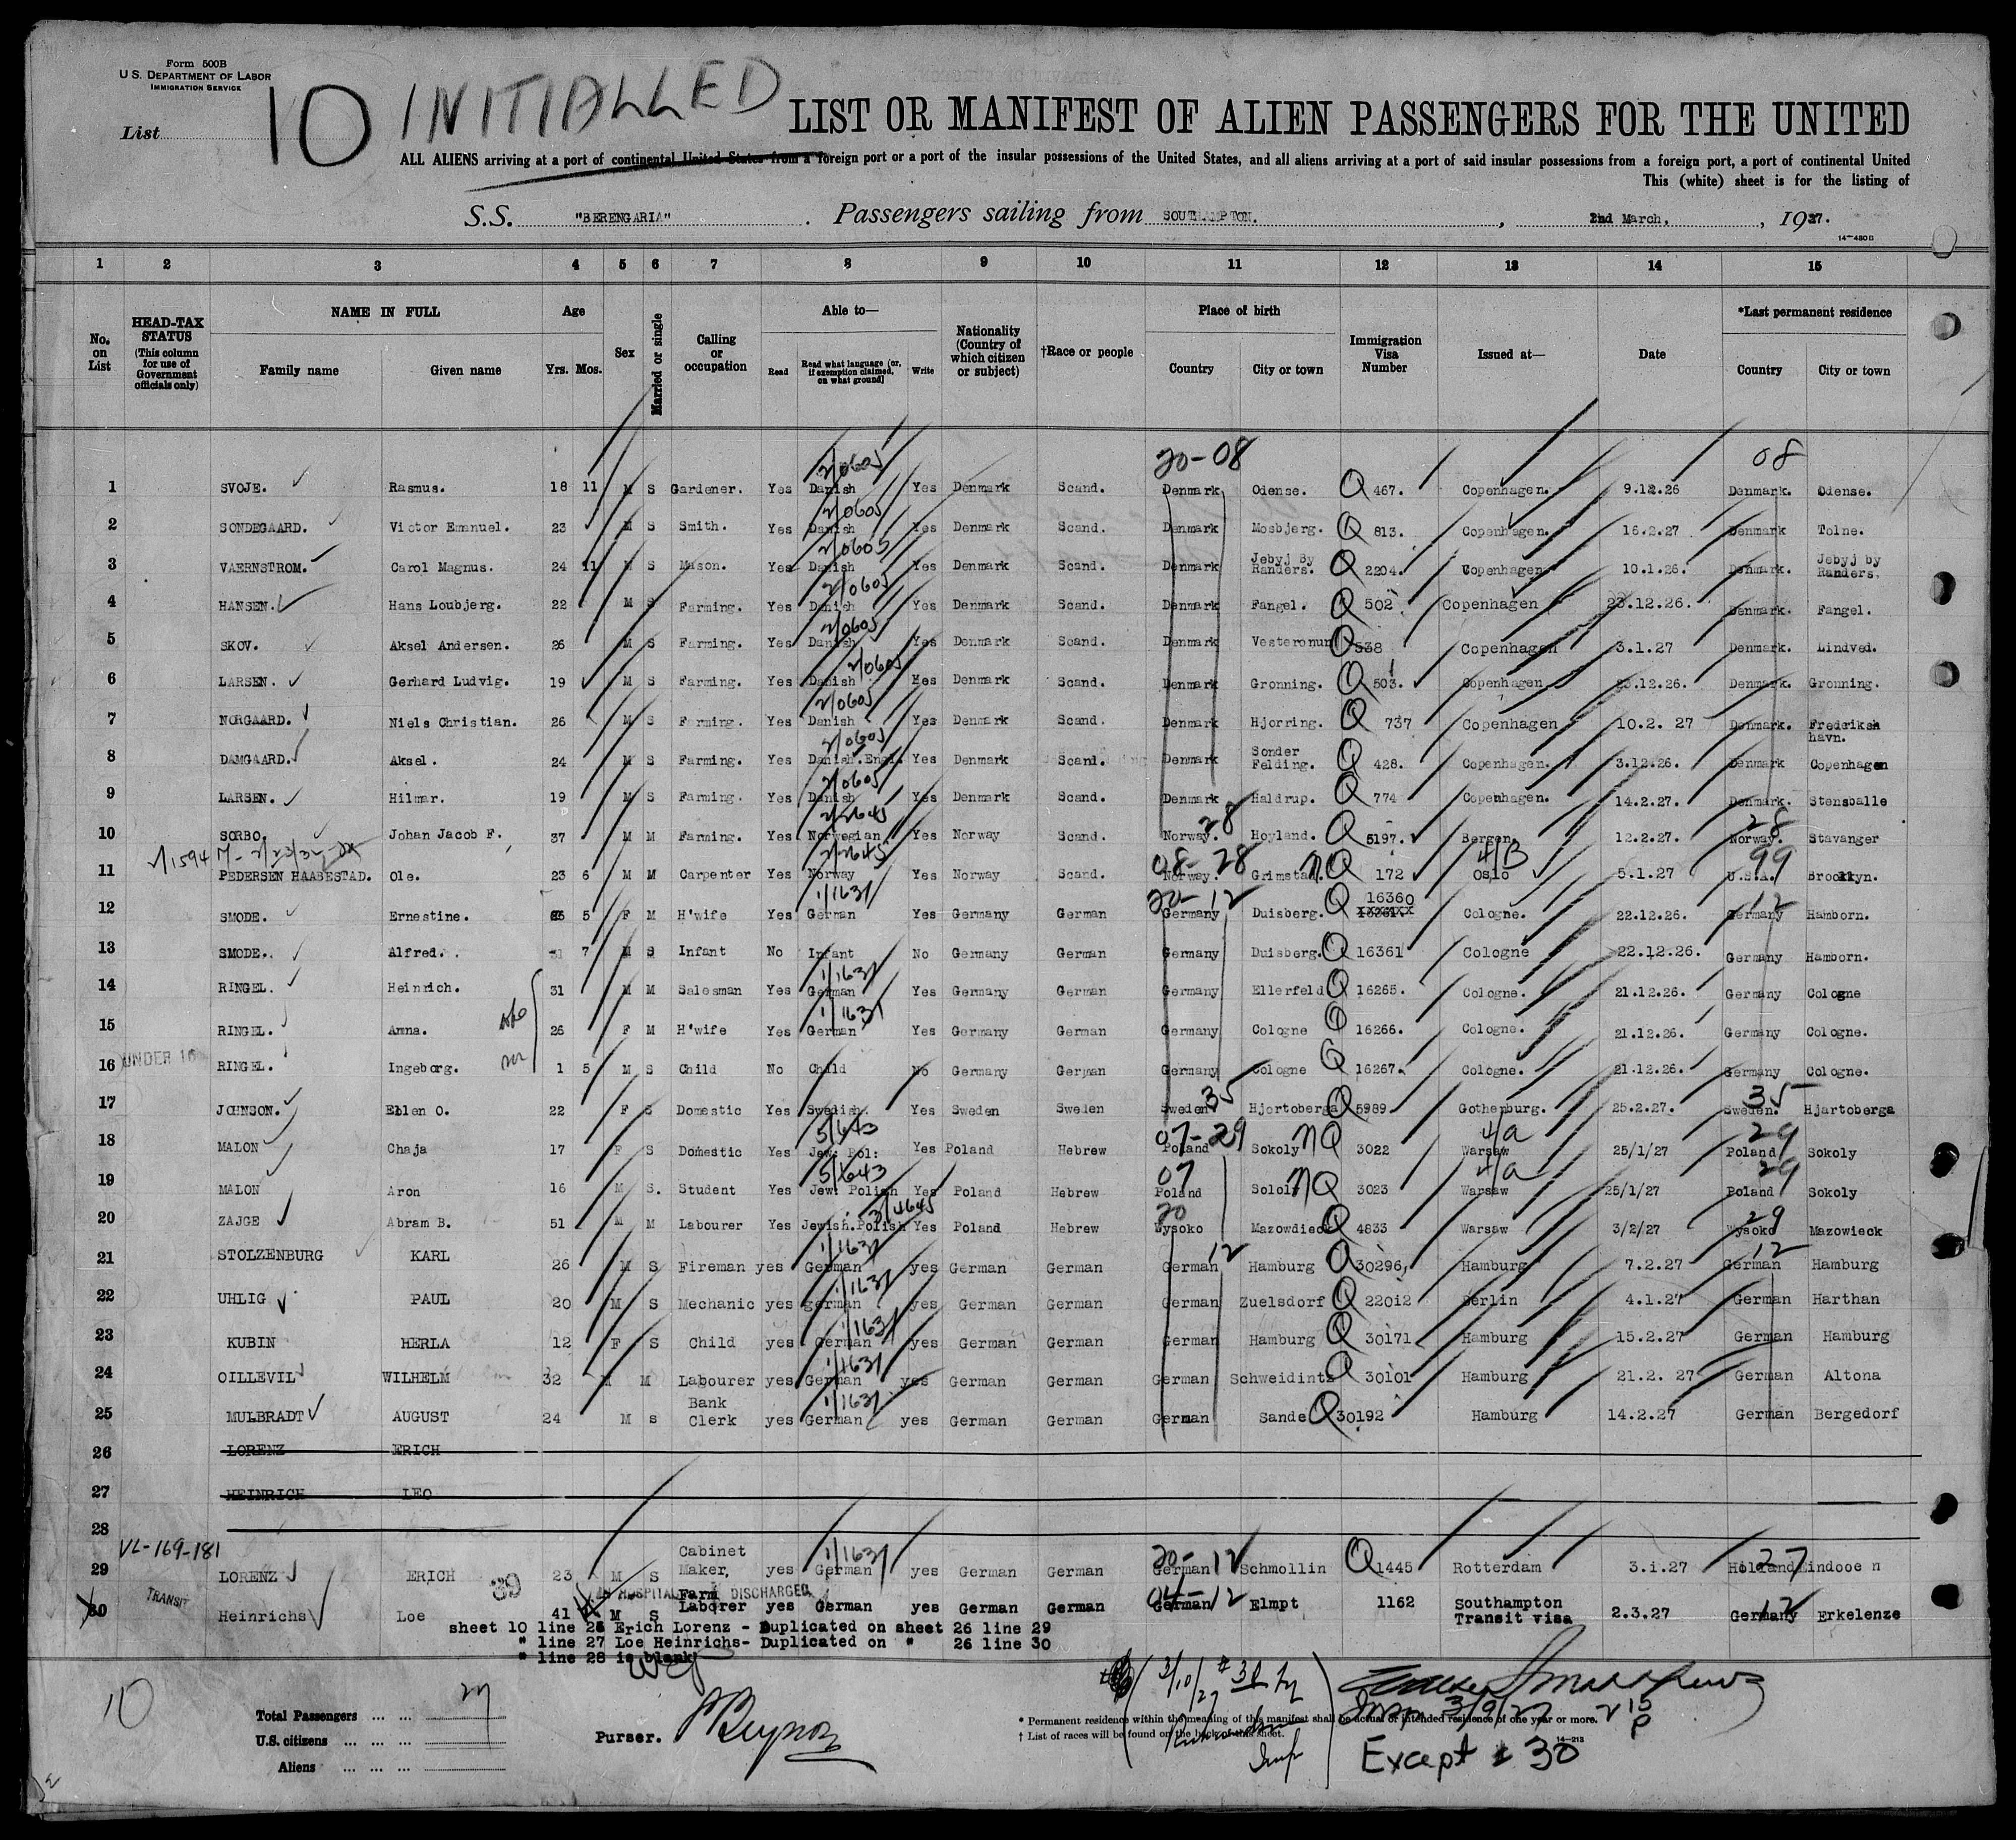 Form 500B
U.S. DEPARTMENT OF LABOR
IMMIGRATION SERVICE
List 10 INITIALLED
LIST OR MANIFEST OF ALIEN PASSENGERS FOR THE UNITED
ALL ALIENS arriving at a port of continental United States from a foreign port or a port of the insular possessions of the United States, and all aliens arriving at a port of said insular possessions from a foreign port, a port of continental United
This (white) sheet is for the listing of
S.S. "BERENGARIA" . Passengers sailing from SOUTHAMPTON. , 2nd March, , 1927.
14-430B
1 2 3 4 5 6 7 8 9 10 11 12 13 14 15
No. on List HEAD-TAX STATUS (This column for use of Government officials only) NAME IN FULL Family name Given name Age Yrs. Mos. Sex Married or single Calling or occupation Able to— Read Read what language (or, if exemption claimed, on what ground) Write Nationality (Country of which citizen or subject) †Race or people Place of birth Country City or town Immigration Visa Number Issued at— Date *Last permanent residence Country City or town
20-08 08
1 SVOJE. Rasmus. 18 11 M S Gardener. Yes Danish 2/0605 Yes Denmark Scand. Denmark Odense. Q 467. Copenhagen. 9.12.26 Denmark. Odense.
2 SONDEGAARD. Victor Emanuel. 23 M S Smith. Yes Danish 2/0605 Yes Denmark Scand. Denmark Mosbjerg. Q 813. Copenhagen. 16.2.27 Denmark Tolne.
3 VAERNSTROM. Carol Magnus. 24 11 M S Mason. Yes Danish 2/0605 Yes Denmark Scand. Denmark Jebyj By Randers. Q 2204. Copenhagen 10.1.26. Denmark. Jebyj by Randers.
4 HANSEN. Hans Loubjerg. 22 M S Farming. Yes Danish 2/0605 Yes Denmark Scand. Denmark Fangel. Q 502 Copenhagen 23.12.26. Denmark. Fangel.
5 SKOV. Aksel Andersen. 26 M S Farming. Yes Danish 2/0605 Yes Denmark Scand. Denmark Vesteronum Q 538 Copenhagen 3.1.27 Denmark. Lindved.
6 LARSEN. Gerhard Ludvig. 19 M S Farming. Yes Danish 2/0605 Yes Denmark Scand. Denmark Gronning. Q 503. Copenhagen 23.12.26. Denmark. Gronning.
7 NORGAARD. Niels Christian. 26 M S Farming. Yes Danish 2/0605 Yes Denmark Scand. Denmark Hjorring. Q 737 Copenhagen 10.2. 27 Denmark. Frederiksh havn.
8 DAMGAARD. Aksel. 24 M S Farming. Yes Danish.Engl. 2/0605 Yes Denmark Scand. Denmark Sonder Felding. Q 428. Copenhagen. 3.12.26. Denmark Copenhagen
9 LARSEN. Hilmar. 19 M S Farming. Yes Danish 2/0605 Yes Denmark Scand. Denmark Haldrup. Q 774 Copenhagen. 14.2.27. Denmark. Stensballe
10 SORBO. Johan Jacob F. 37 M M Farming. Yes Norwegian 2/2645 Yes Norway Scand. Norway. 28 Hoyland. Q 5197. Bergen. 12.2.27. Norway. 28 Stavanger
11 PEDERSEN HAABESTAD. Ole. 23 6 M M Carpenter Yes Norway 2/2645 Yes Norway Scand. 08-28 Norway. Grimstad. NQ 172 4/B Oslo 5.1.27 99 U.S.A. Brooklyn.
12 SMODE. Ernestine. 5 F M H'wife Yes German 1/1631 Yes Germany German 20-12 Germany Duisberg. Q 16360 Cologne. 22.12.26. 12 Germany Hamborn.
13 SMODE. Alfred. 7 M S Infant No Infant No Germany German Germany Duisberg. Q 16361 Cologne 22.12.26. Germany Hamborn.
14 RINGEL. Heinrich. 31 M M Salesman Yes German 1/1631 Yes Germany German Germany Ellerfeld Q 16265. Cologne. 21.12.26. Germany Cologne
15 RINGEL. Anna. 26 F M H'wife Yes German 1/1631 Yes Germany German Germany Cologne Q 16266. Cologne. 21.12.26. Germany Cologne.
16 UNDER 16 RINGEL. Ingeborg. 1 5 M S Child No Child No Germany German Germany Cologne Q 16267. Cologne. 21.12.26. Germany Cologne.
17 JOHNSON. Ellen O. 22 F S Domestic Yes Swedish. Yes Sweden Sweden Sweden 35 Hjortoberga Q 5989 Gothenburg. 25.2.27. Sweden. 35 Hjartoberga
18 MALON Chaja 17 F S Domestic Yes Jew: Pol: 5/643 Yes Poland Hebrew 07-29 Poland Sokoly NQ 3022 4/a Warsaw 25/1/27 29 Poland Sokoly
19 MALON Aron 16 M S. Student Yes Jew: Polish 5/643 Yes Poland Hebrew 07 Poland Sololy NQ 3023 4/a Warsaw 25/1/27 29 Poland Sokoly
20 ZAJGE Abram B. 51 M M Labourer Yes Jewish.Polish Yes Poland Hebrew 20 Wysoko Mazowdieck Q 4833 Warsaw 3/2/27 29 Wysoko Mazowieck
21 STOLZENBURG KARL 26 M S Fireman yes German 1/1631 yes German German German 12 Hamburg Q 30296 Hamburg 7.2.27 12 German Hamburg
22 UHLIG PAUL 20 M S Mechanic yes german 1/1631 yes German German German Zuelsdorf Q 22012 Berlin 4.1.27 German Harthan
23 KUBIN HERLA 12 F S Child yes German 1/1631 yes German German German Hamburg Q 30171 Hamburg 15.2.27 German Hamburg
24 OILLEVIL WILHELM 32 M M Labourer yes German 1/1631 yes German German German Schweidintz Q 30101 Hamburg 21.2. 27 German Altona
25 MULBRADT AUGUST 24 M s Bank Clerk yes German 1/1631 yes German German German Sande Q 30192 Hamburg 14.2.27 German Bergedorf
26 LORENZ ERICH
27 HEINRICH LEO
28
VL-169-181
29 LORENZ ERICH 23 M S Cabinet Maker, yes German 1/1631 yes German German 20-12 German Schmollin Q 1445 Rotterdam 3.1.27 Holland 27 Eindooe n
39 IN HOSPITAL DISCHARGED
30 TRANSIT Heinrichs Loe 41 M S Farm Laborer yes German yes German German 04-12 German Elmpt 1162 Southampton Transit visa 2.3.27 Germany 12 Erkelenze
sheet 10 line 26 Erich Lorenz - Duplicated on sheet 26 line 29
" line 27 Loe Heinrichs- Duplicated on " 26 line 30
" line 28 is blank
10
Total Passengers ... ... 27
U.S. citizens ... ... ...
Aliens ... ... ...
Purser.
* Permanent residence within the meaning of this manifest shall be actual or intended residence of one year or more.
† List of races will be found on the back of this sheet.
14-213
3/9/27
Except # 30